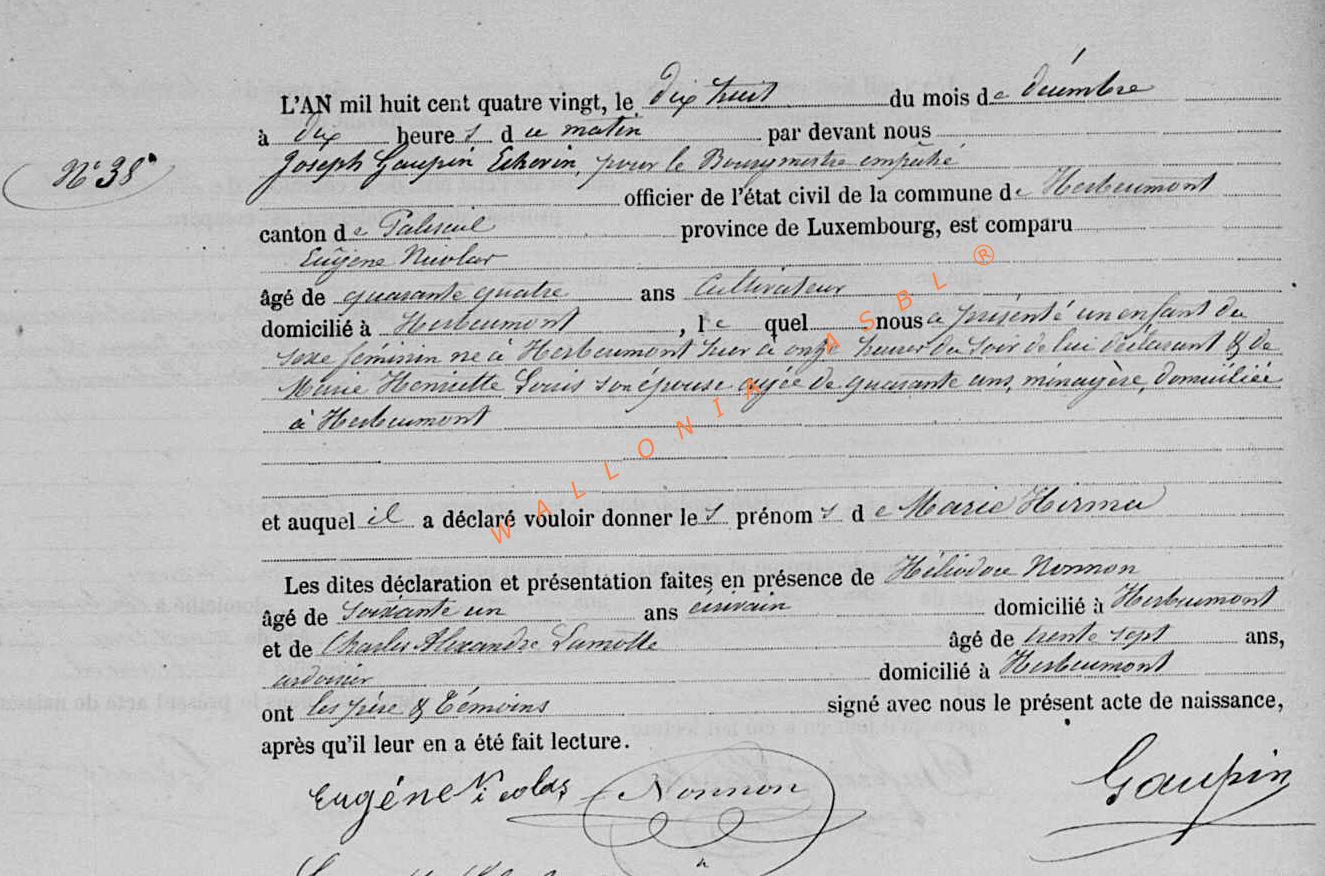 L'AN mil huit cent quatre vingt, le dix huit du mois de décembre
à dix heures du matin par devant nous
N° 38
Joseph Gaupin Echevin, pour le Bourgmestre empêché
officier de l'état civil de la commune de Herbeumont
canton de Paliseul province de Luxembourg, est comparu
Eugène Nicolas
âgé de quarante quatre ans cultivateur
domicilié à Herbeumont, lequel nous a présenté un enfant du
sexe féminin né à Herbeumont hier à onze heures du soir de lui déclarant & de
Marie Henriette Louis son épouse agée de quarante ans, ménagère, domiciliée
à Herbeumont
et auquel il a déclaré vouloir donner les prénoms de Marie Hirma
Les dites déclaration et présentation faites en présence de Héliodore Nonnon
âgé de soixante un ans écrivain domicilié à Herbeumont
et de Charles Alexandre Lamotte âgé de trente sept ans,
ardoisier domicilié à Herbeumont
ont les père & témoins signé avec nous le présent acte de naissance,
après qu'il leur en a été fait lecture.
Eugéne Nicolas Nonnon Gaupin
WALLONIA ASBL ®